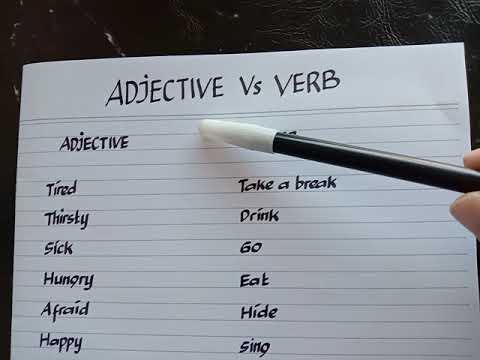 ADJECTIVE Vs VERB
ADJECTIVE
Tired Take a break
Thirsty Drink
Sick Go
Hungry Eat
Afraid Hide
Happy Sing